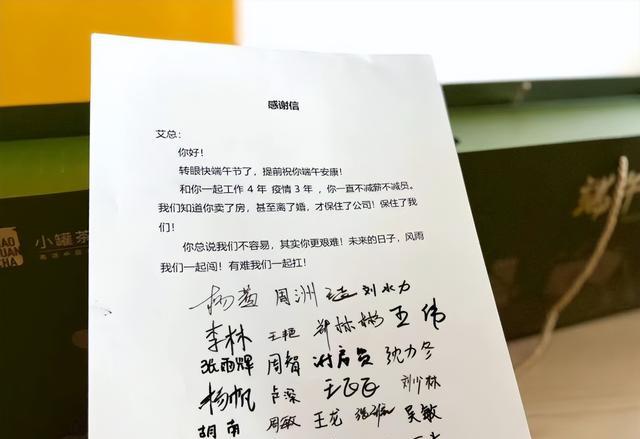 感谢信
艾总：
你好！
转眼快端午节了，提前祝你端午安康！
和你一起工作4年 疫情3年，你一直不减薪不减员。
我们知道你卖了房，甚至离了婚，才保住了公司！保住了我
们！
你总说我们不容易，其实你更艰难！未来的日子，风雨
我们一起闯！有难我们一起扛！
杨茜 周洲 刘水力
李林 王艳 郑彬彬 王伟
张雨辉 周智 沈力冬
杨帆 卢深 刘少林
胡南 周敏 王龙 吴敏
小罐茶